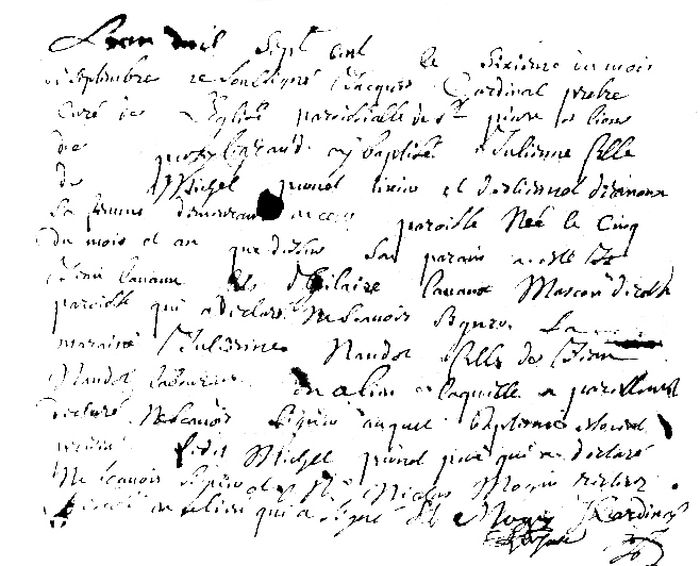 L'an mil sept cent le sixieme du mois
de septembre ie soubsigné Jacques Cardinal prebre
curé de L'Eglise paroichialle de St pierre es liens
de ay baptisé Julienne fille
de Michel prunot et d'estiennet
sa femme demeurant en cette paroisse Née le Cinq
du mois et an que dessus son parain a esté
Jean lanaux fils d'hilaire lanaux Masson
paroisse qui a declaré ne scavoir signer La
maraine Julienne Naudot fille de Jean
Naudot laboureur en ce lieu laquelle a pareillement
declaré ne scavoir signer auquel baptesme estoient
ledit Michel prunot pere qui a declaré
ne scavoir signer et Mr Nicolas Morin
en ce lieu qui a signé Cardinal